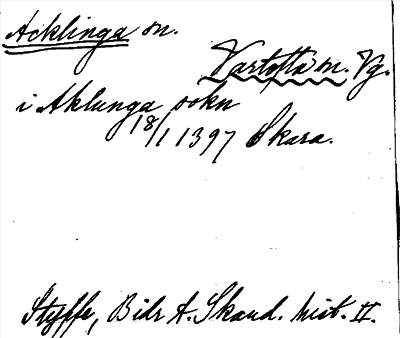 Acklinga sn.
Vartofta m. Vg.
i Aklunga sokn
18/1 1397 Skara.
Styffe, Bidr t. Skand. hist. II.